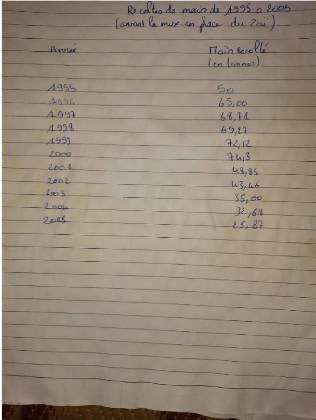 Recoltes de maïs de 1995 a 2005
(avant la mise en place du Zaï)
Année Maïs recolté
(en tonnes)
1995 50
1996 65,00
1997 68,71
1998 69,27
1999 72,12
2000 74,3
2001 48,85
2002 43,66
2003 35,00
2004 32,68
2005 25,87